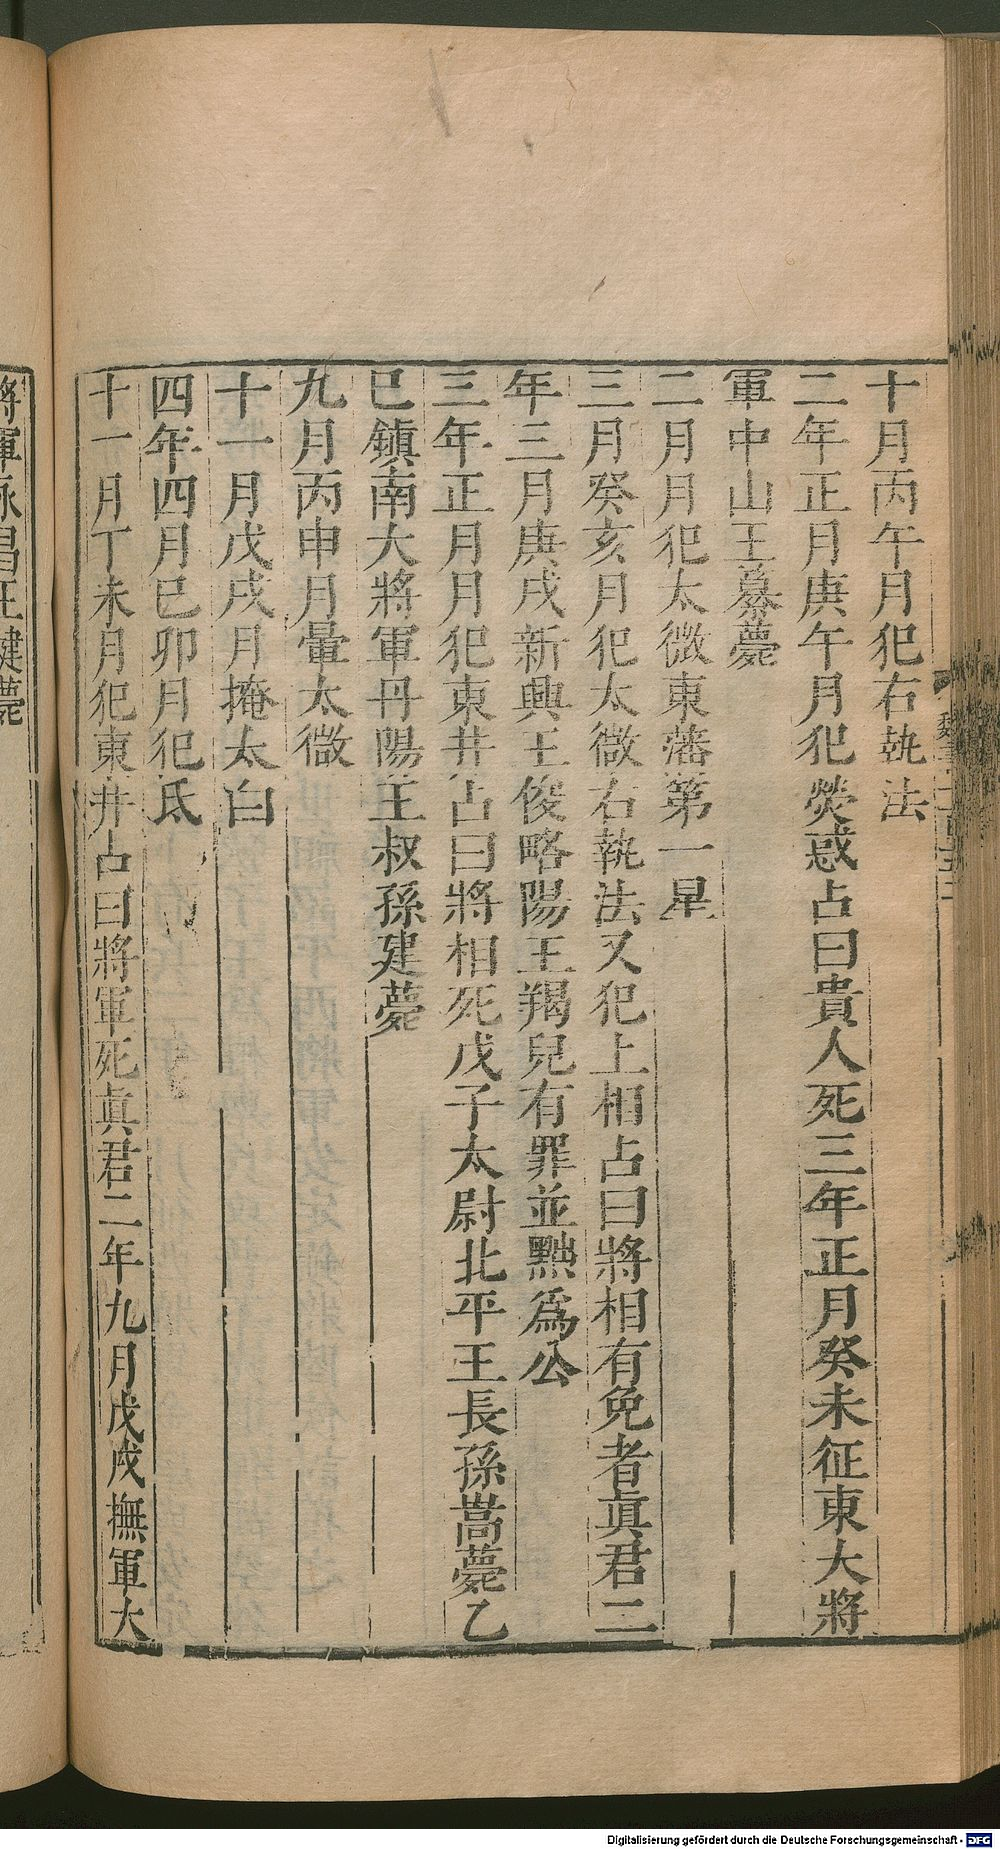 十月丙午月犯右執法
二年正月庚午月犯熒惑占曰貴人死三年正月癸未征東大將
軍中山王纂薨
二月月犯太微東藩第一星
三月癸亥月犯太微右執法又犯上相占曰將相有免者眞君二
年三月庚戌新興王俊略陽王羯兒有罪並黜爲公
三年正月月犯東井占曰將相死戊子太尉北平王長孫嵩薨乙
巳鎮南大將軍丹陽王叔孫建薨
九月丙申月暈太微
十一月戊戌月掩太白
四年四月己卯月犯氐
十一月丁未月犯東井占曰將軍死眞君二年九月戊戌撫軍大
將軍永昌王健薨
Digitalisierung gefördert durch die Deutsche Forschungsgemeinschaft - DFG